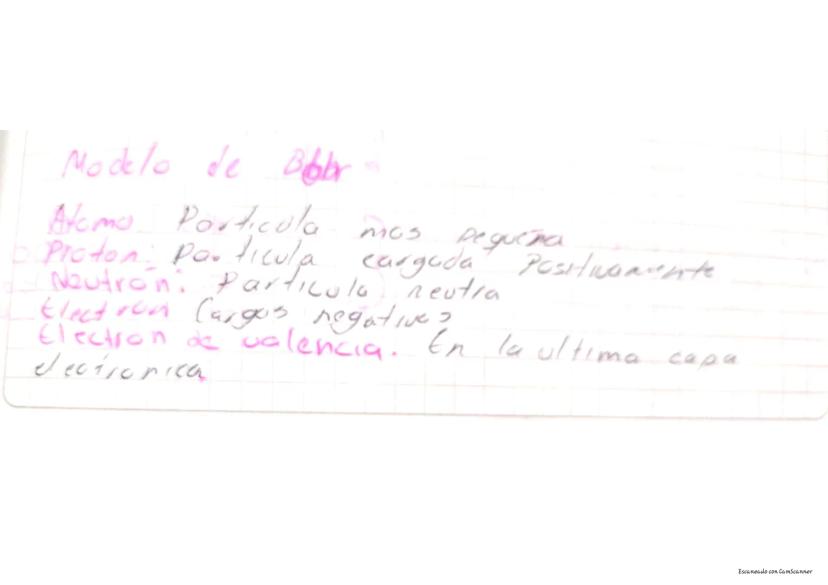 Modelo de Bohr
Atomo Particula mas pequeña
Proton: Particula cargada Positivamente
Neutrón: Particula neutra
Electron Cargas negativas
Electron de valencia. En la ultima capa
electronica
Escaneado con CamScanner